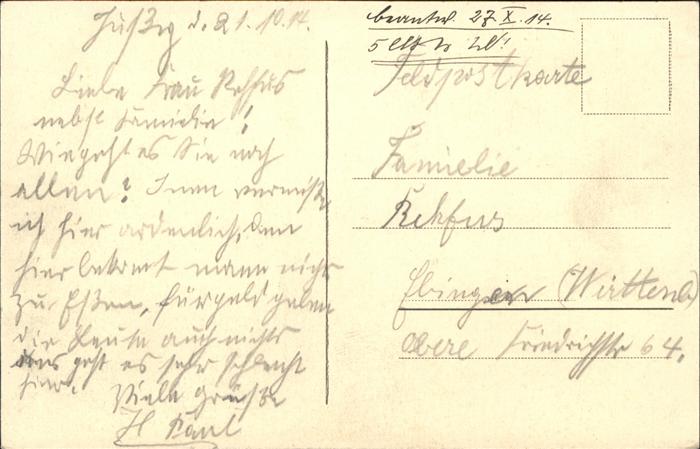 d. 21.10.14.
Liebe Frau Rehfus
nebst Familie!
Wie geht es Sie noch
allen? Inen vermiße
ich hier ardenlich, den
hier bekomt mann nichts
zu Eßen, für geld geben
die Leute auch nichts
uns geht es sehr schlecht
hier.
Viele grüße
H Karl
beantw. 27. X. 14.
Feldpostkarte
Familie
Rehfus
Ebingen (Württenb)
obere Friedrichstr 64.